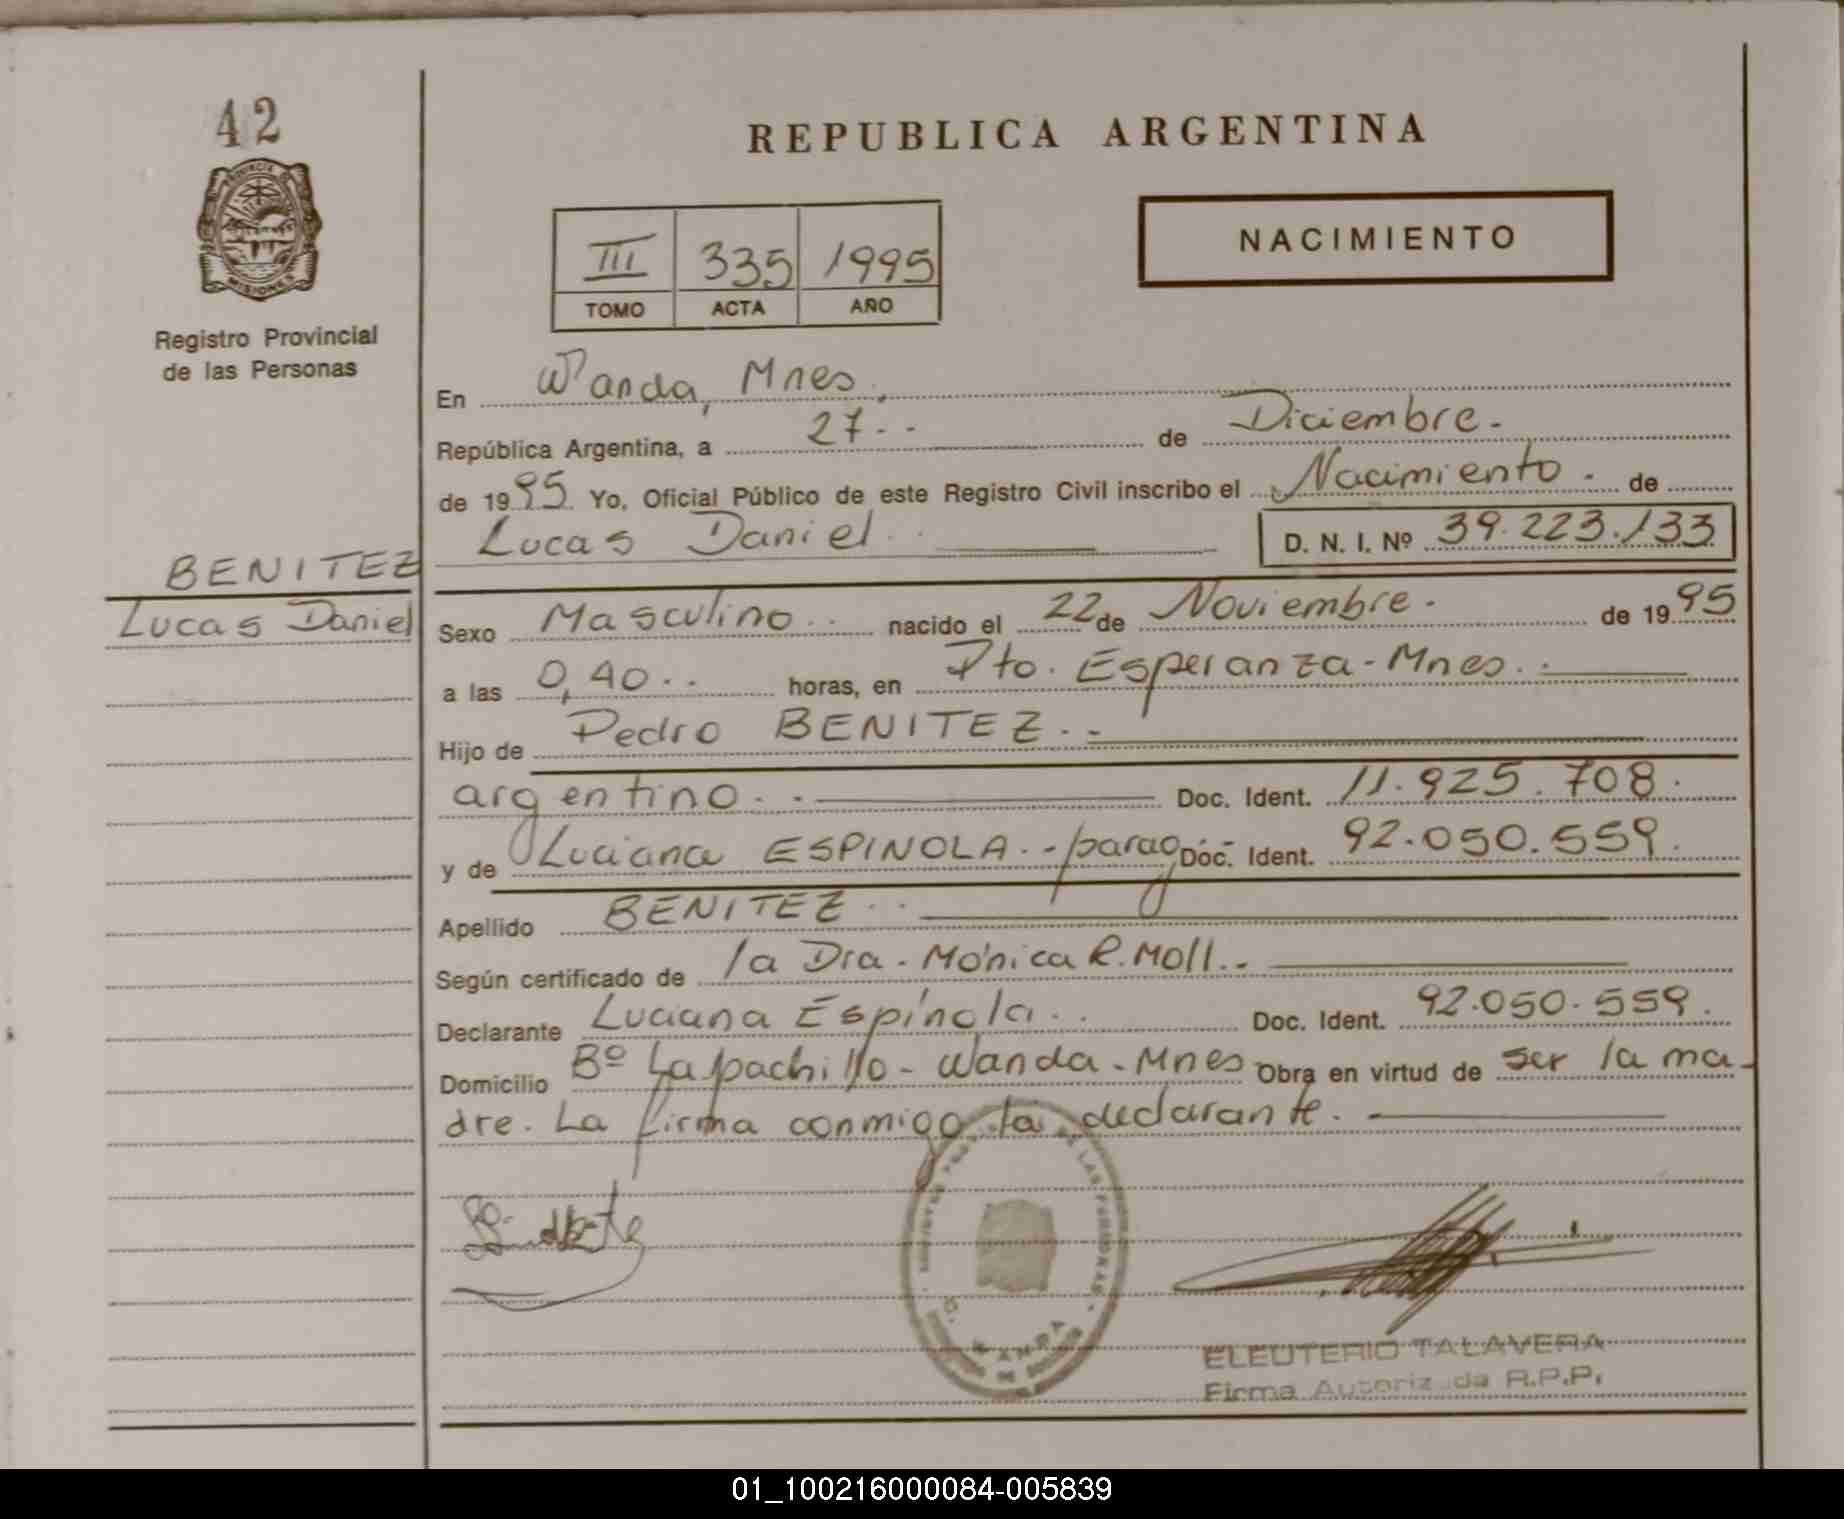 42
PROVINCIA DE
MISIONES
Registro Provincial
de las Personas
BENITEZ
Lucas Daniel
REPUBLICA ARGENTINA
III 335 1995
TOMO ACTA AÑO
NACIMIENTO
En Wanda, Mnes.
República Argentina, a 27.. de Diciembre.
de 1995. Yo, Oficial Público de este Registro Civil inscribo el Nacimiento. de
Lucas Daniel. D. N. I. Nº 39.223.133
Sexo Masculino.. nacido el 22 de Noviembre. de 1995
a las 0,40.. horas, en Pto. Esperanza-Mnes..
Hijo de Pedro BENITEZ..
argentino.. Doc. Ident. 11.925.708.
y de Luciana ESPINOLA..-parag.- Doc. Ident. 92.050.559.
Apellido BENITEZ..
Según certificado de la Dra. Mónica R. Moll..
Declarante Luciana Espínola.. Doc. Ident. 92.050.559.
Domicilio Bº Lapachillo-Wanda-Mnes Obra en virtud de ser la ma-
dre. La firma conmigo la declarante.
DE LAS PERSONAS
WANDA
ELEUTERIO TALAVERA
Firma Autorizada R.P.P.
01_100216000084-005839